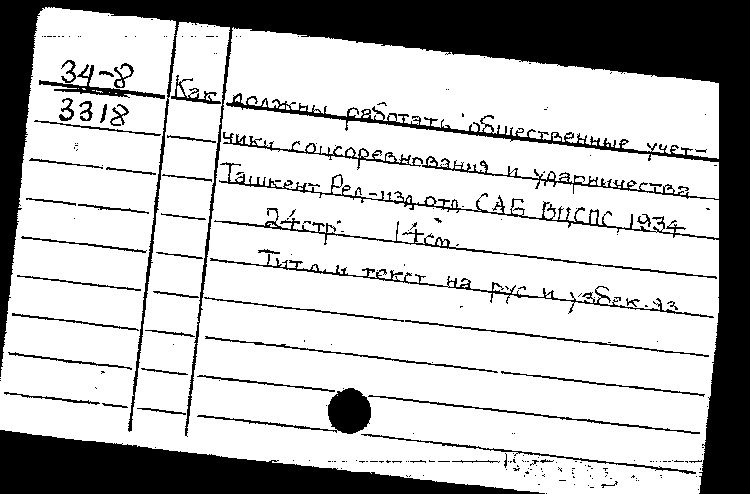 34-8
3318
Как должны работать общественные учет-
чики соцсоревнования и ударничества
Ташкент, Ред.-изд. отд. САБ ВЦСПС, 1934
24 стр. 14 см.
Тит. л. и текст на рус и узбек. яз.